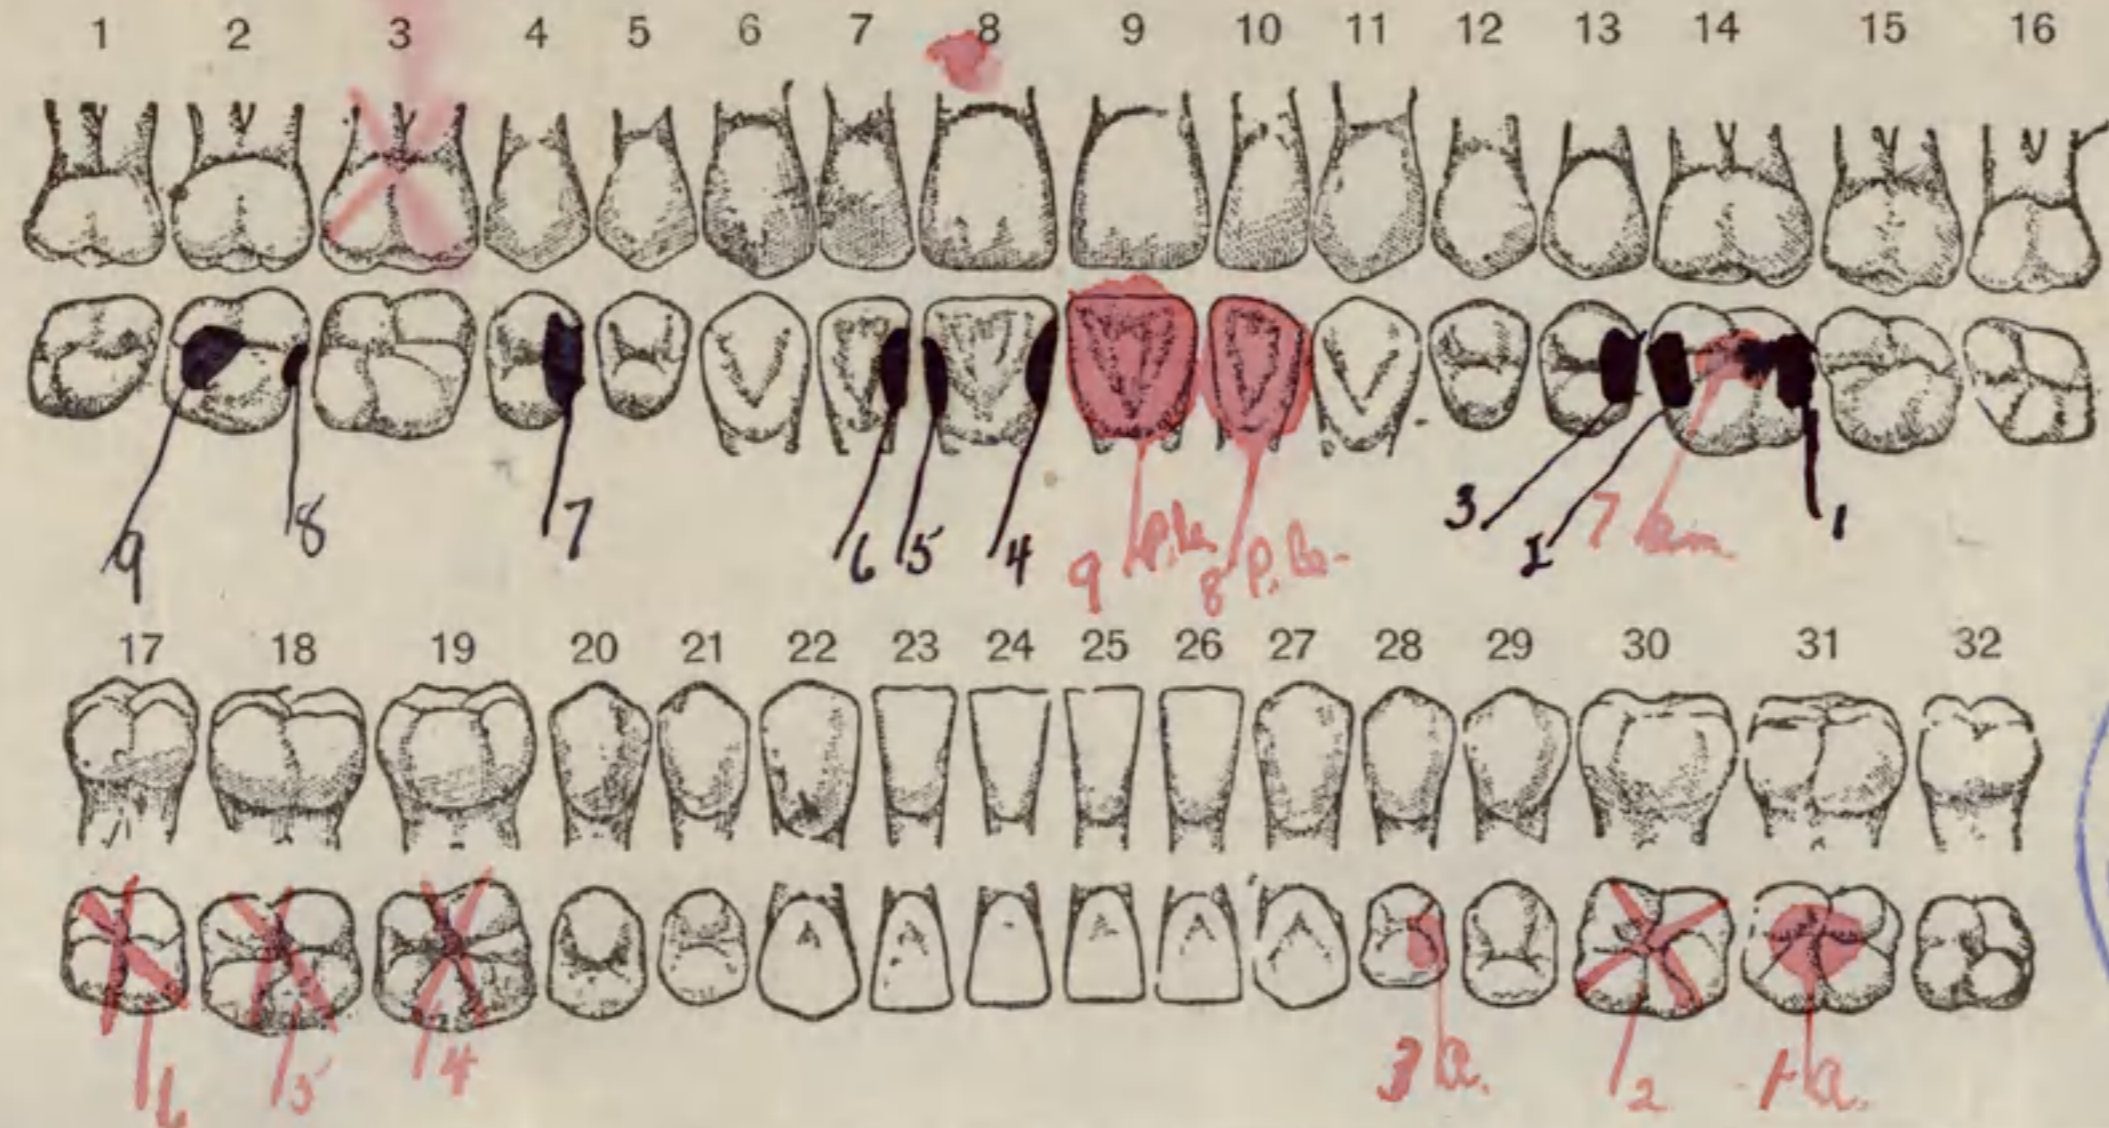 1 2 3 4 5 6 7 8 9 10 11 12 13 14 15 16
9 8 7 6 5 4 9 8 3 1 7 1
17 18 19 20 21 22 23 24 25 26 27 28 29 30 31 32
6 5 4 3 a. 2 1 a.